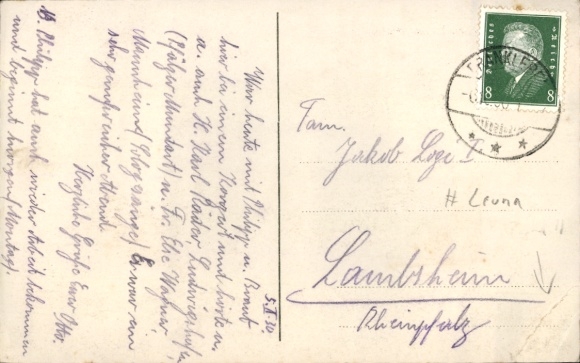 5.X.30
War heute mit Philipp u. Braut
hier bei einem Konzert und hörte u.
a. auch H. Karl Räder, Ludwigshafen
(Pfälzer Mundart) u. Fr. Else Wagner
Mannheim (Sologesänge). Es war ein
sehr genußreicher Abend.
Herzliche Grüße Euer Otto.
N. Philipp hat auch wieder Arbeit bekommen
und beginnt morgen (Montag).
Deutsches Reich
8 8
FRANKENTHAL
Fam.
Jakob Loge I
# Leuna
Lambsheim
Rheinpfalz